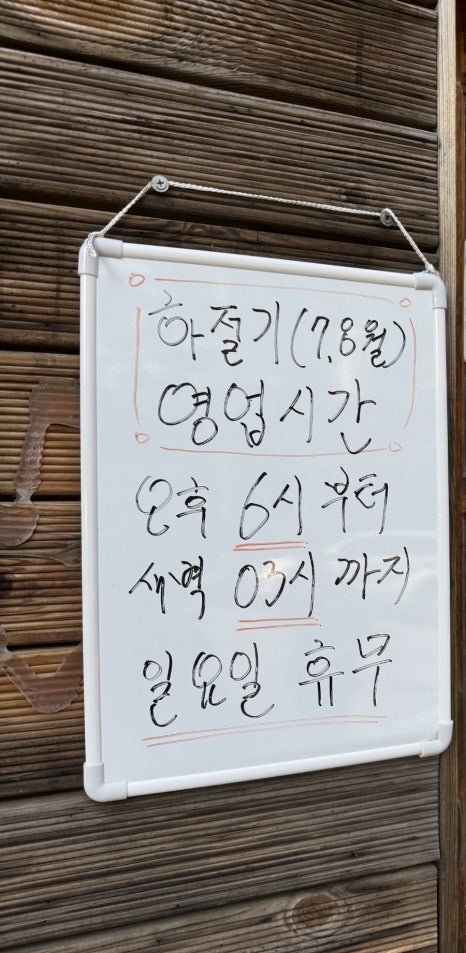 하절기(7.8월)
영업시간
오후 6시 부터
새벽 03시 까지
일요일 휴무